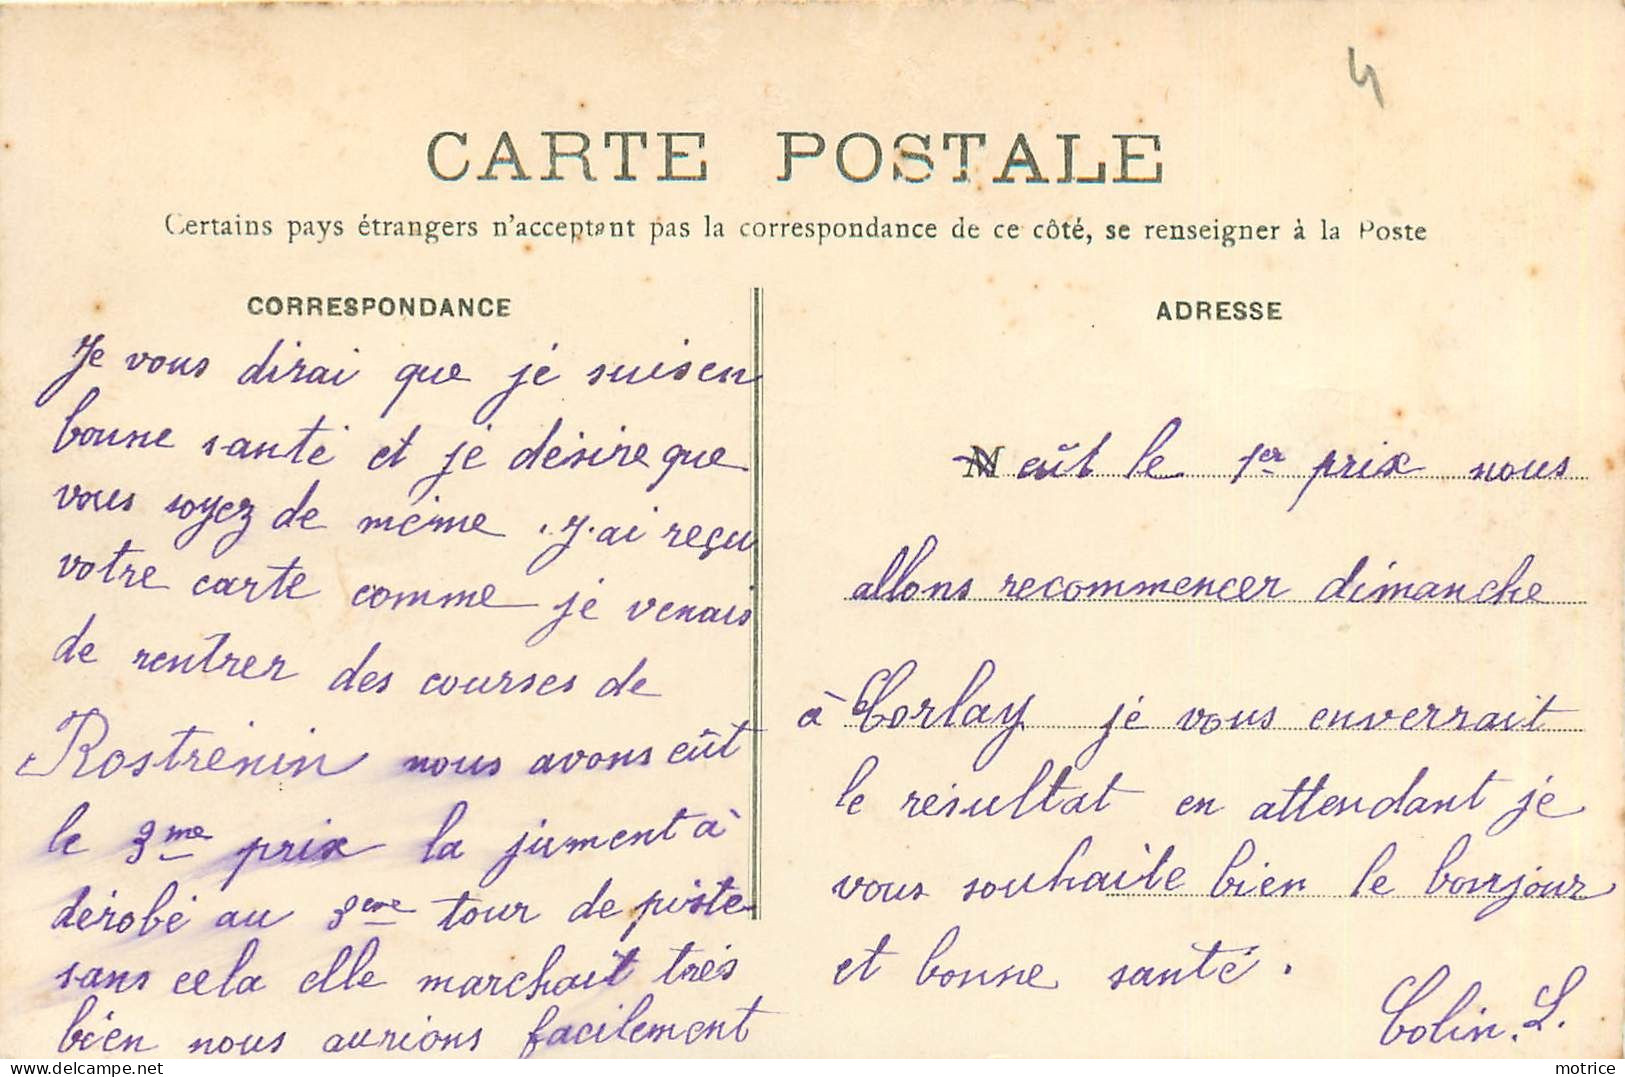 4
CARTE POSTALE
Certains pays étrangers n'acceptant pas la correspondance de ce côté, se renseigner à la Poste
CORRESPONDANCE
Je vous dirai que je suis en
bonne santé et je désire que
vous soyez de même. J'ai reçu
votre carte comme je venais
de rentrer des courses de
Rostrenin nous avons eût
le 3me prix la jument à
dérobé au 3eme tour de piste
sans cela elle marchait très
bien nous aurions facilement
ADRESSE
M eût le 1er prix nous
allons recommencer dimanche
à Corlay je vous enverrait
le résultat en attendant je
vous souhaite bien le bonjour
et bonne santé.
Colin. L.
motrice